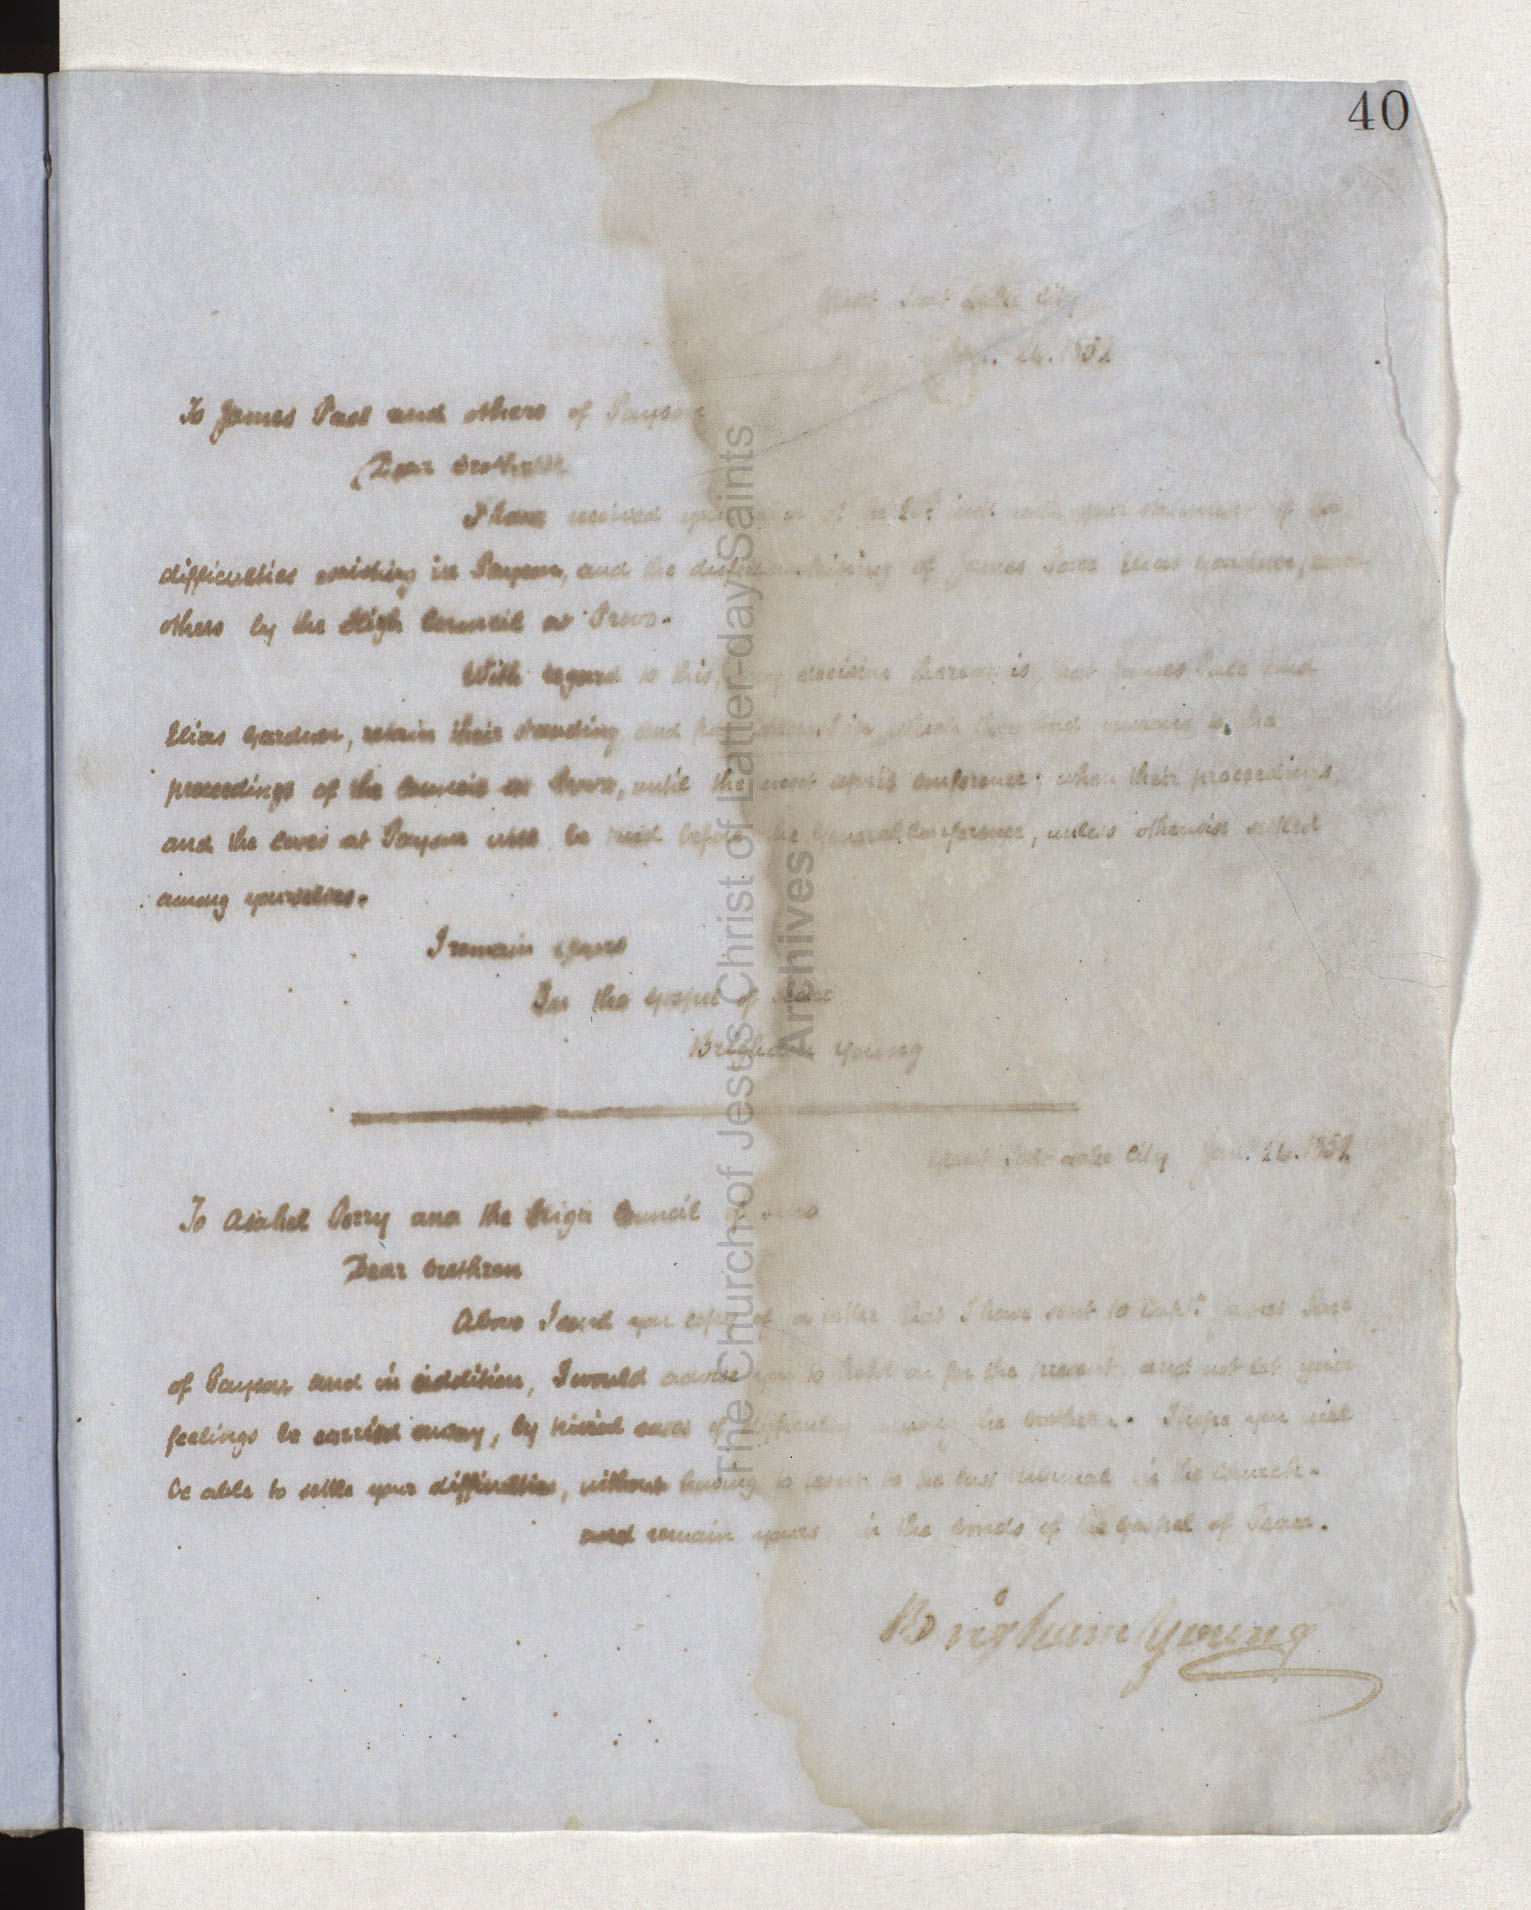 40
Great Salt Lake City
Jan. 26. 1852
To James Pace and others of Payson
Dear Brethren
I have received your letter of the inst. with your statement of the
difficulties existing in Payson, and the disfellowshiping of James Pace Elias Gardner, and
others by the High Council at Provo.
With regard to this, my decision thereon is, that James Pace and
Elias Gardner, retain their standing and in which they had previous to the
proceedings of the Council at Provo, until the next April Conference; when their proceedings,
and the cases at Payson will be tried before the General Conference, unless otherwise settled
among yourselves.
I remain yours
In the Gospel of Peace
Brigham Young
Great Salt Lake City Jan. 26. 1852
To Asahel Perry and the High Council of
Dear Brethren
Above I send you copy of a letter that I have sent to Capt. James Pace
of Payson and in addition, I would advise you to hold on for the present, and not let your
feelings be carried away, by trivial cases of difficulty among the brethren. I hope you will
be able to settle your difficulties, without having to resort to the last tribunal in the Church.
and remain yours, in the bonds of the Gospel of Peace.
Brigham Young
The Church of Jesus Christ of Latter-day Saints
Archives